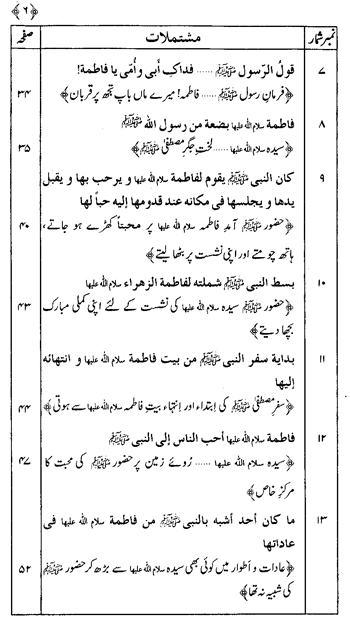 ﴿٦﴾
نمبر شمار مشتملات صفحہ
٧ قولُ الرّسول ﷺ ...... فداكِ أبي و أمّي يا فاطمة!
﴿فرمانِ رسول ﷺ ...... فاطمہ! میرے ماں باپ تجھ پر قربان﴾ ٣٤
٨ فاطمة سلام الله عليها بضعة من رسول الله ﷺ
﴿سیدہ سلام اللہ علیہا ...... لختِ جگرِ مصطفیٰ ﷺ﴾ ٣٥
٩ كان النبي ﷺ يقوم لفاطمة سلام الله عليها و يرحب بها و يقبل
يدها و يجلسها في مكانه عند قدومها إليه حباً لها
﴿حضور ﷺ آمدِ فاطمہ سلام اللہ علیہا پر محبتاً کھڑے ہو جاتے، ٤٠
ہاتھ چومتے اور اپنی نشست پر بٹھا لیتے﴾
١٠ بسط النبي ﷺ شملته لفاطمة الزهراء سلام الله عليها
﴿حضور ﷺ سیدہ سلام اللہ علیہا کی نشست کے لئے اپنی کملی مبارک ٤٣
بچھا دیتے﴾
١١ بداية سفر النبي ﷺ من بيت فاطمة سلام الله عليها و انتهائه
إليها
﴿سفرِ مصطفیٰ ﷺ کی ابتداء اور انتہاء بیتِ فاطمہ سلام اللہ علیہا سے ہوتی﴾ ٤٤
١٢ فاطمة سلام الله عليها أحب الناس إلى النبي ﷺ
﴿سیدہ سلام اللہ علیہا ...... رُوئے زمین پر حضور ﷺ کی محبت کا ٤٧
مرکزِ خاص﴾
١٣ ما كان أحد أشبه بالنبي ﷺ من فاطمة سلام الله عليها في
عاداتها
﴿عادات و اَطوار میں کوئی بھی سیدہ سلام اللہ علیہا سے بڑھ کر حضور ﷺ ٥٢
کی شبیہ نہ تھا﴾